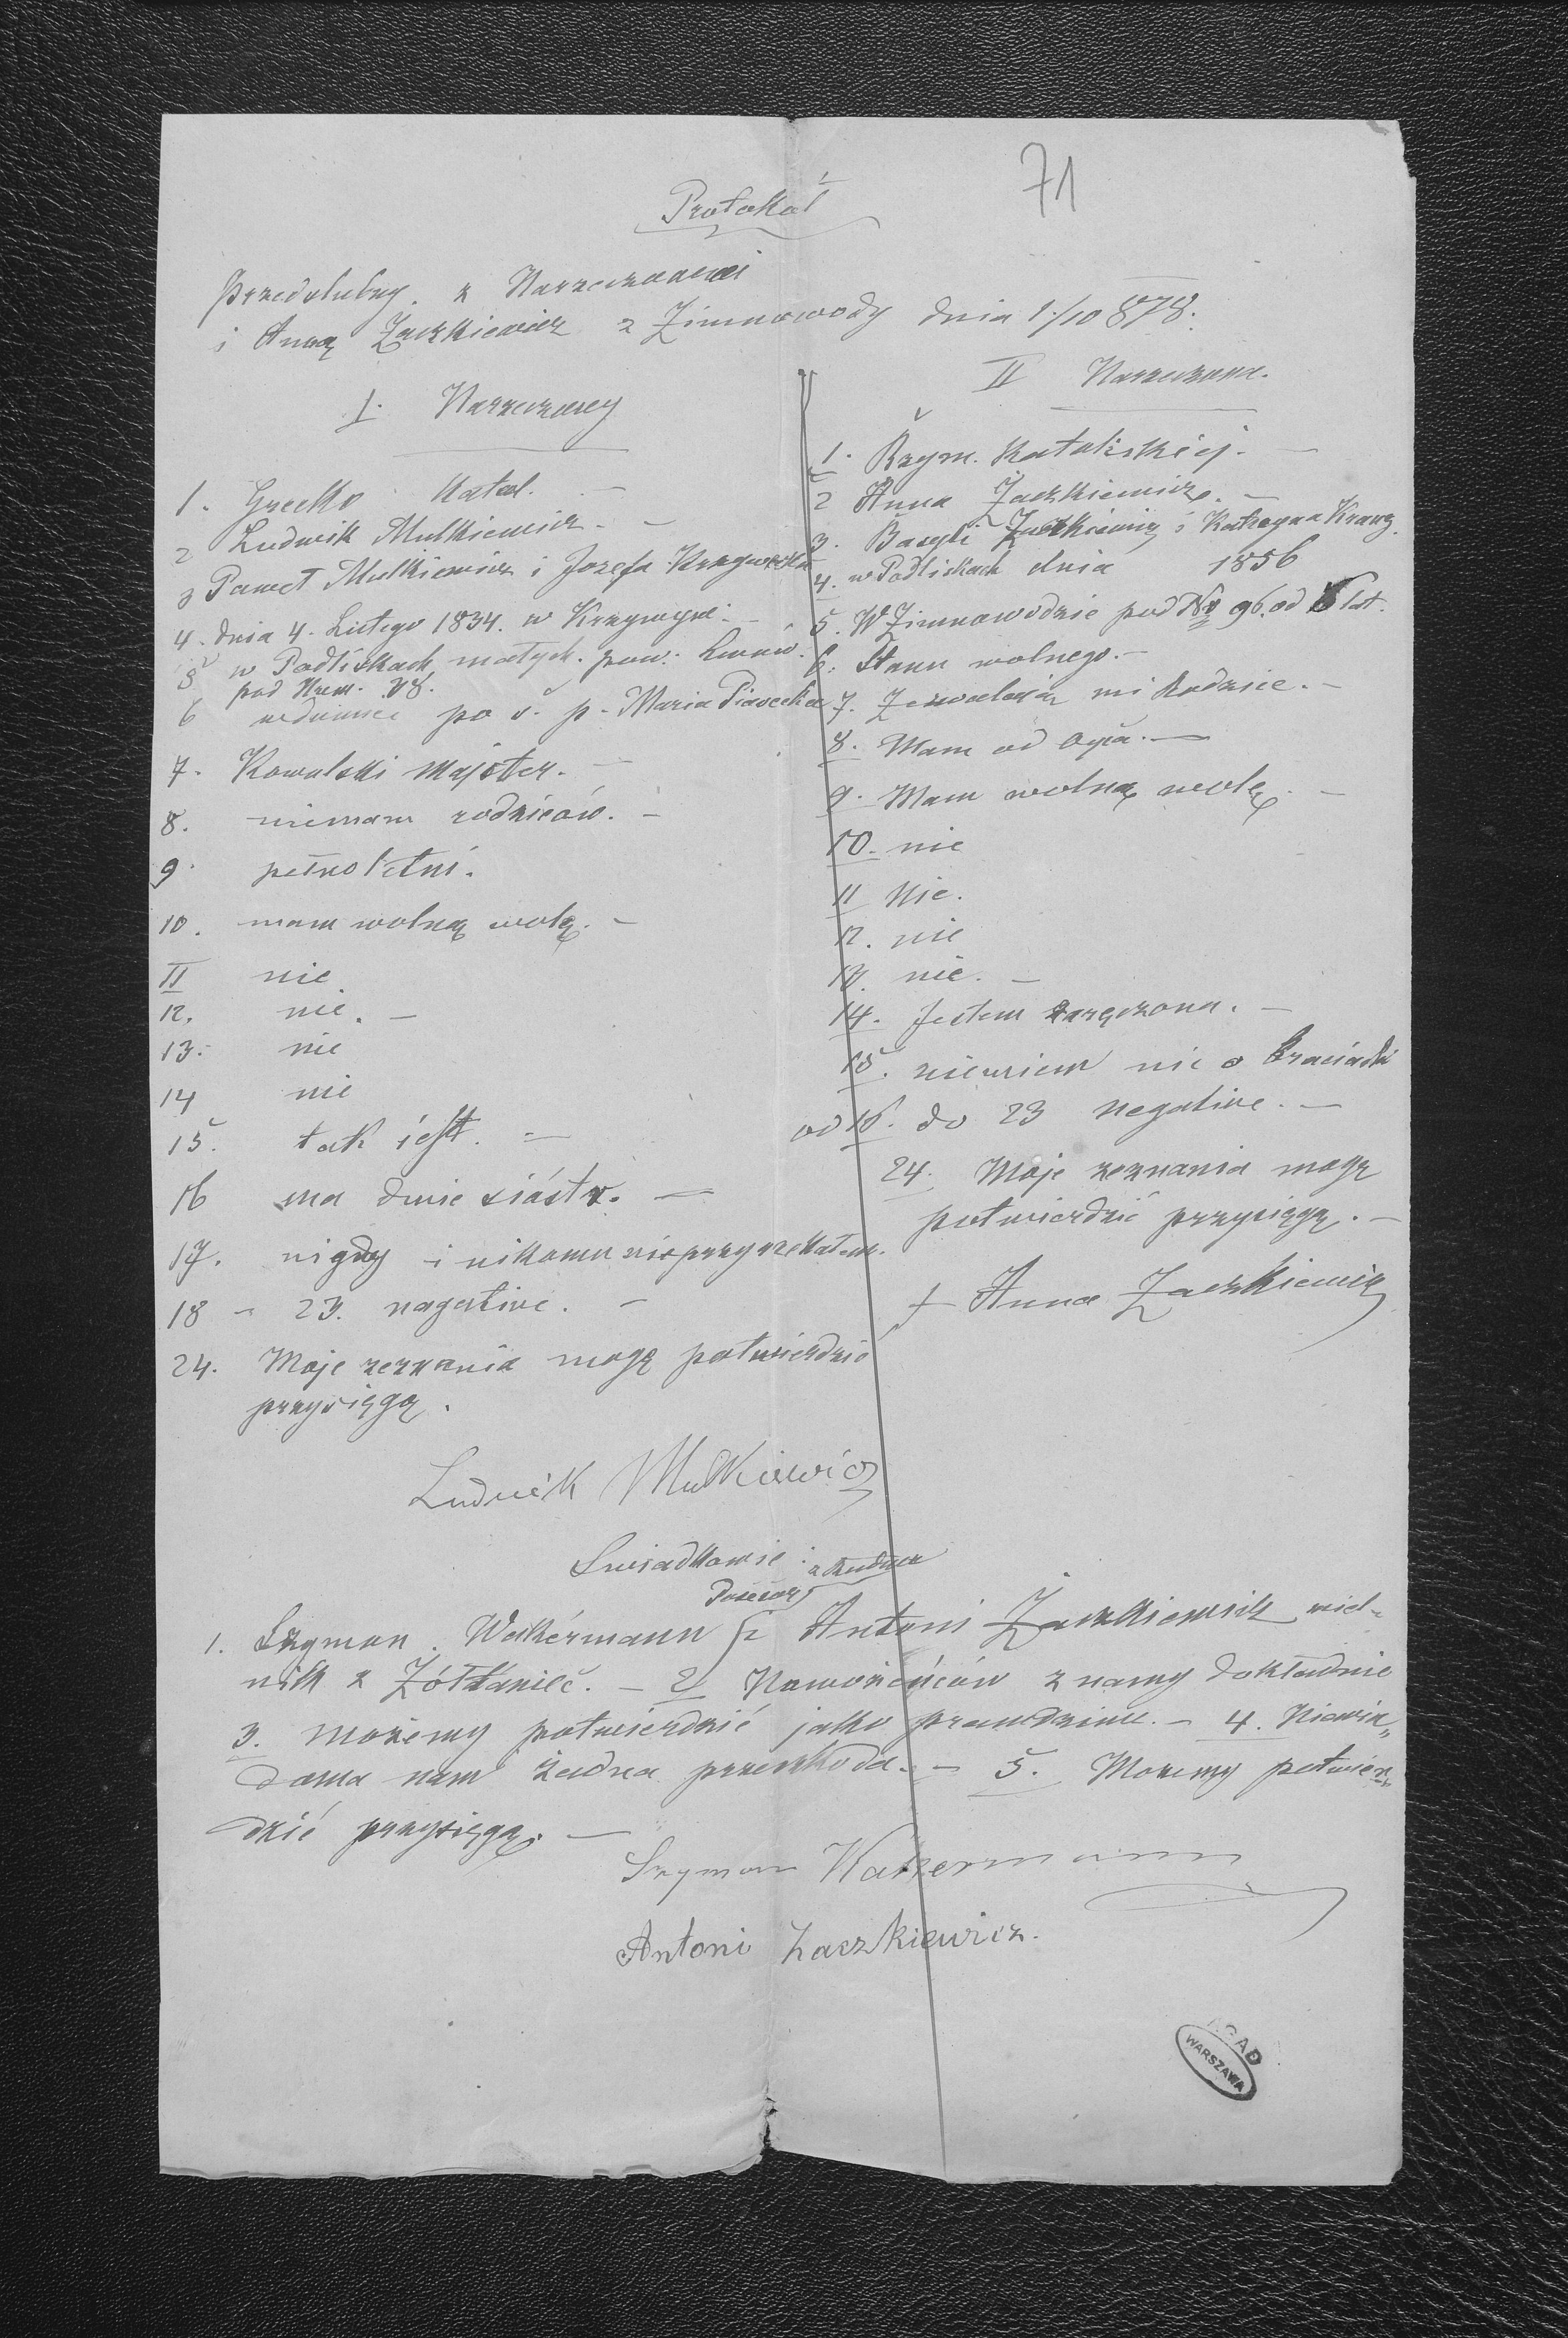 71
Protokół
Przedślubny. z Narzeczonemi
i Anną Zaczkiewicz z Zimnowody dnia 1/10 878.
I. Narzeczony
1. Grecko Katol. —
2 Ludwik Mulkiewicz. —
3 Paweł Mulkiewicz i Jozefa
4. dnia 4. Lutego 1834. w Krzywym. —
5 w Podliskach małych. pow. Lwów.
pod Num. 38.
6 po ś. p. Maria Piasecka
7. Kowalski majster. —
8. niemam rodziców. —
9. pełnoletni.
10. mam wolną wolę. —
11 nie
12. nie. —
13. nie
14 nie
15. tak jest. —
16 ma dwie siostr. —
17. nigdy i nikomu nieprzyrzekałem.
18 - 23. nagative. —
24. Moje zeznania mogę potwierdzić
przysięgą.
Ludwik Mulkiewicz
II Narzeczona.
1. Rzym. Katoliskiej. —
2 Anna Zaczkiewicz. —
3. Bazyli Zaczkiewicz i Katrzyna Krawz.
4. w Podliskach dnia 1856
5. W Zimnawodzie pod Nr 96. od 6 lat.
6. Stanu wolnego. —
7. Zezwalają mi Rodzice. —
8. Mam od Ojca. —
9. Mam wolną wolę. —
10. nie
11 Nie.
12. nie
13. nie. —
14. Jestem zaręczona. —
15. niewiem nic o
od 16. do 23 negative. —
24. Moje zeznania mogę
potwierdzić przysięgą. —
+ Anna Zaczkiewicz
Swiadkowie:
1. Szymon Wakermann i Antoni Zaczkiewicz
nik z Żółtaniec. — 2 Nowożeńców znamy dokładnie
3. możemy potwierdzić jako prawdziwe. — 4. Niewia„
doma nam żadna przeszkoda. — 5. Mozemy potwier„
dzić przysięgą. —
Szymon Wakermann
Antoni Zaczkiewicz.
AGAD
WARSZAWA